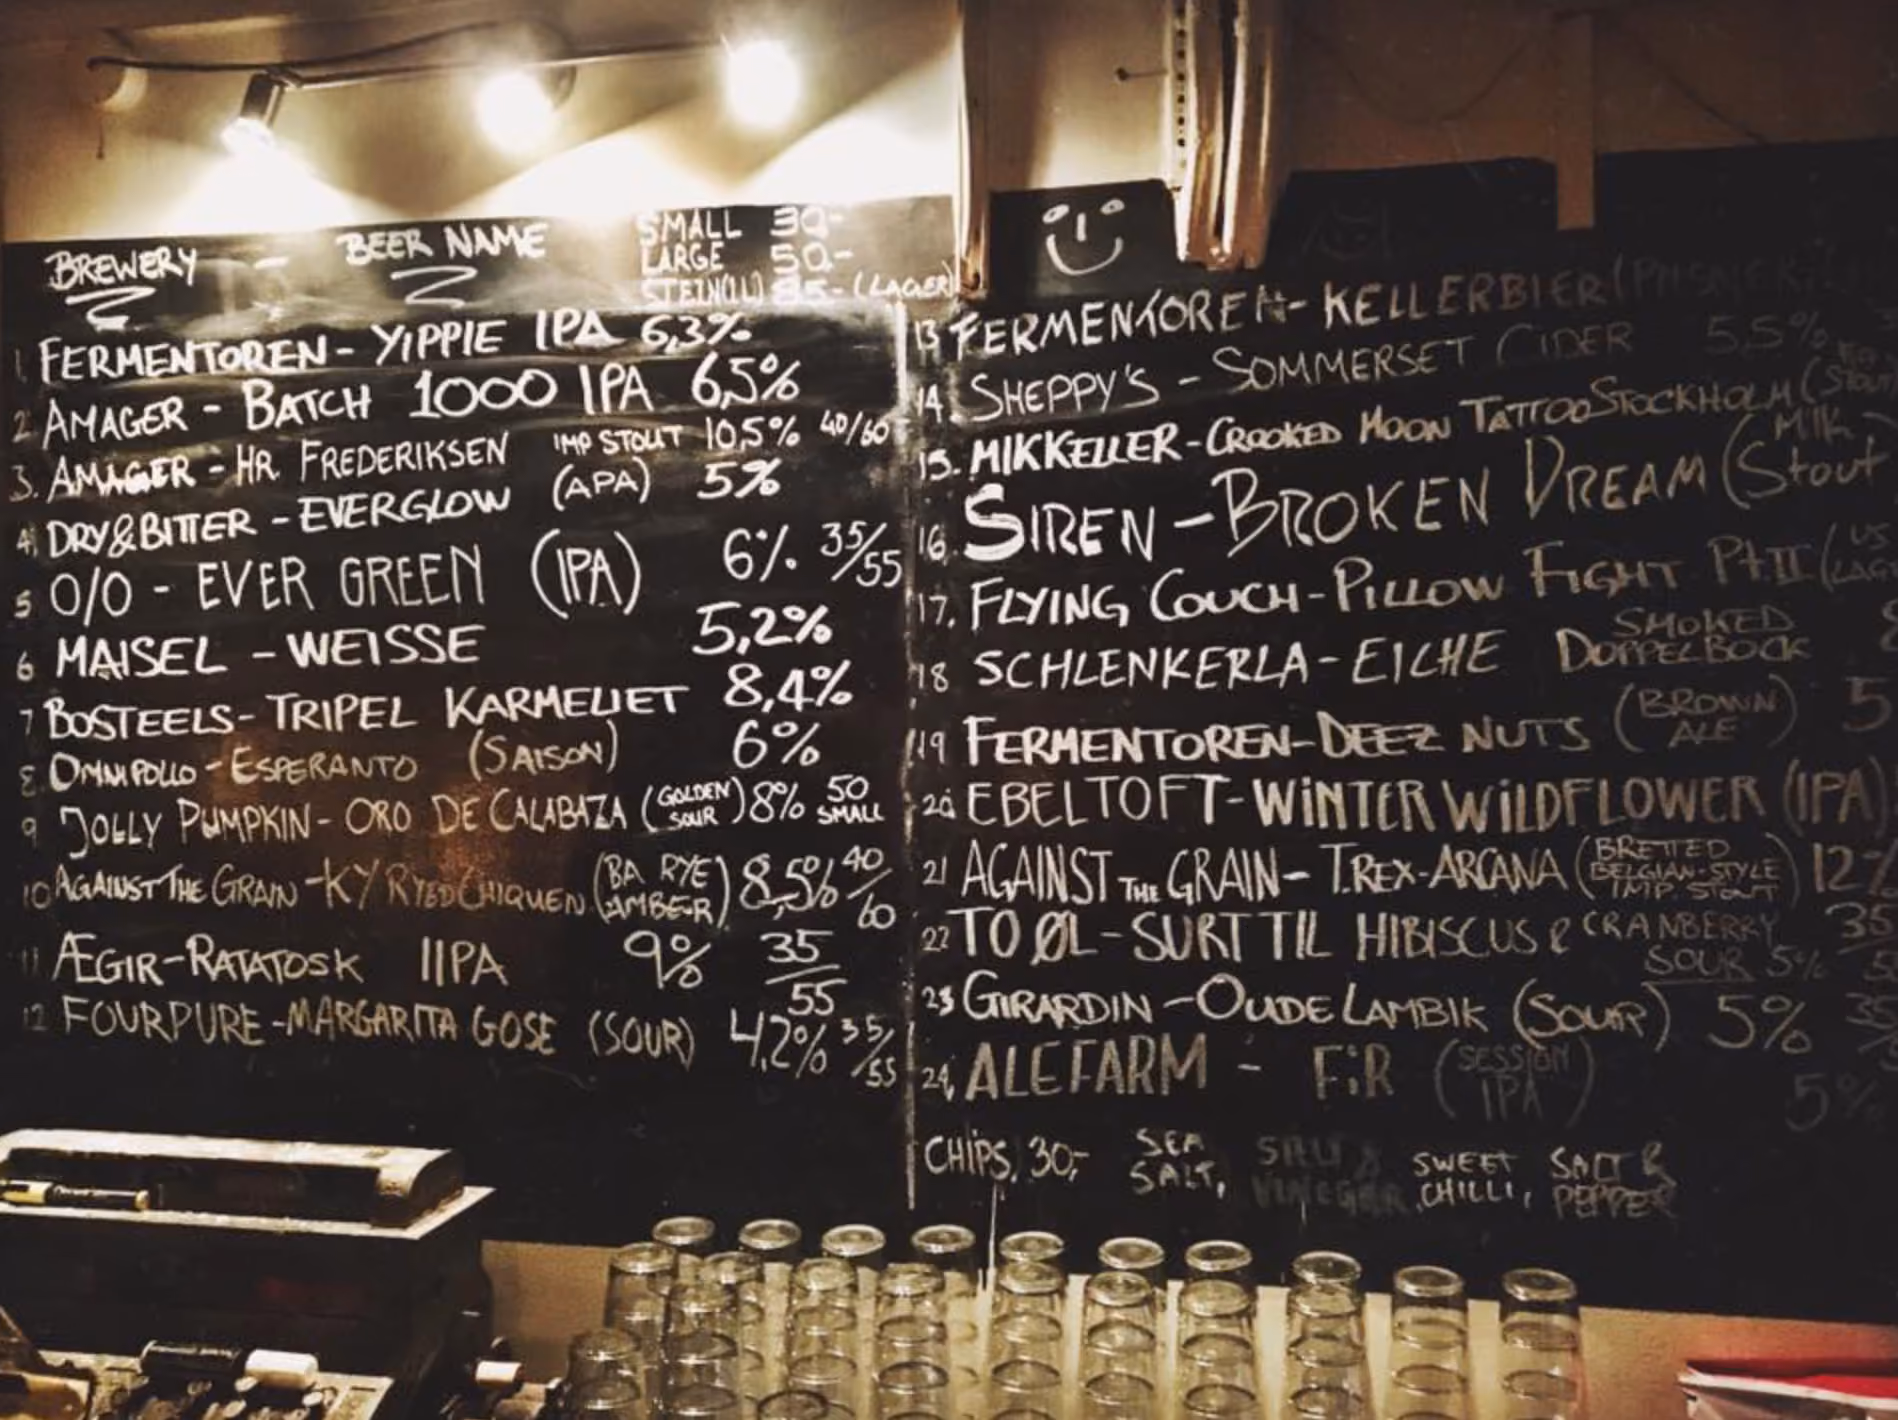 BREWERY - BEER NAME
SMALL 30-
LARGE 50-
STEIN(1L) 85- (LAGER)
1. FERMENTOREN - YIPPIE IPA 6,3%
2 AMAGER - BATCH 1000 IPA 6,5%
3. AMAGER - HR. FREDERIKSEN IMP STOUT 10,5% 40/60
4. DRY&BITTER - EVERGLOW (APA) 5%
5 O/O - EVER GREEN (IPA) 6% 35/55
6 MAISEL - WEISSE 5,2%
7 BOSTEELS - TRIPEL KARMELIET 8,4%
8. OMNIPOLLO - ESPERANTO (SAISON) 6%
9 JOLLY PUMPKIN - ORO DE CALABAZA (GOLDEN SOUR) 8% 50 SMALL
10 AGAINST THE GRAIN - KY RYED CHIQUEN (BA RYE AMBER) 8,5% 40/60
11 ÆGIR - RATATOSK IIPA 9% 35/55
12 FOURPURE - MARGARITA GOSE (SOUR) 4,2% 35/55
13 FERMENTOREN - KELLERBIER (PILSNER)
14. SHEPPY'S - SOMMERSET CIDER 5,5%
15. MIKKELLER - CROOKED MOON TATTOO STOCKHOLM (
16. SIREN - BROKEN DREAM (MILK Stout
17. FLYING COUCH - PILLOW FIGHT Pt. II (US
18 SCHLENKERLA - EICHE SMOKED DOPPELBOCK
19 FERMENTOREN - DEEZ NUTS (BROWN ALE) 5
20 EBELTOFT - WiNTER WiLDFLOWER (IPA)
21 AGAINST THE GRAIN - T.REX-ARCANA (BRETTED BELGIAN-STYLE IMP. STOUT) 12%
22 TO ØL - SURT TIL HIBISCUS & CRANBERRY 35
SOUR 5%
23 GIRARDIN - OUDE LAMBIK (SOUR) 5% 35
24. ALEFARM - FiR (SESSION IPA) 5%
CHiPS, 30,- SEA SALT, SALT & VINEGAR, SWEET CHILLI, SALT & PEPPER